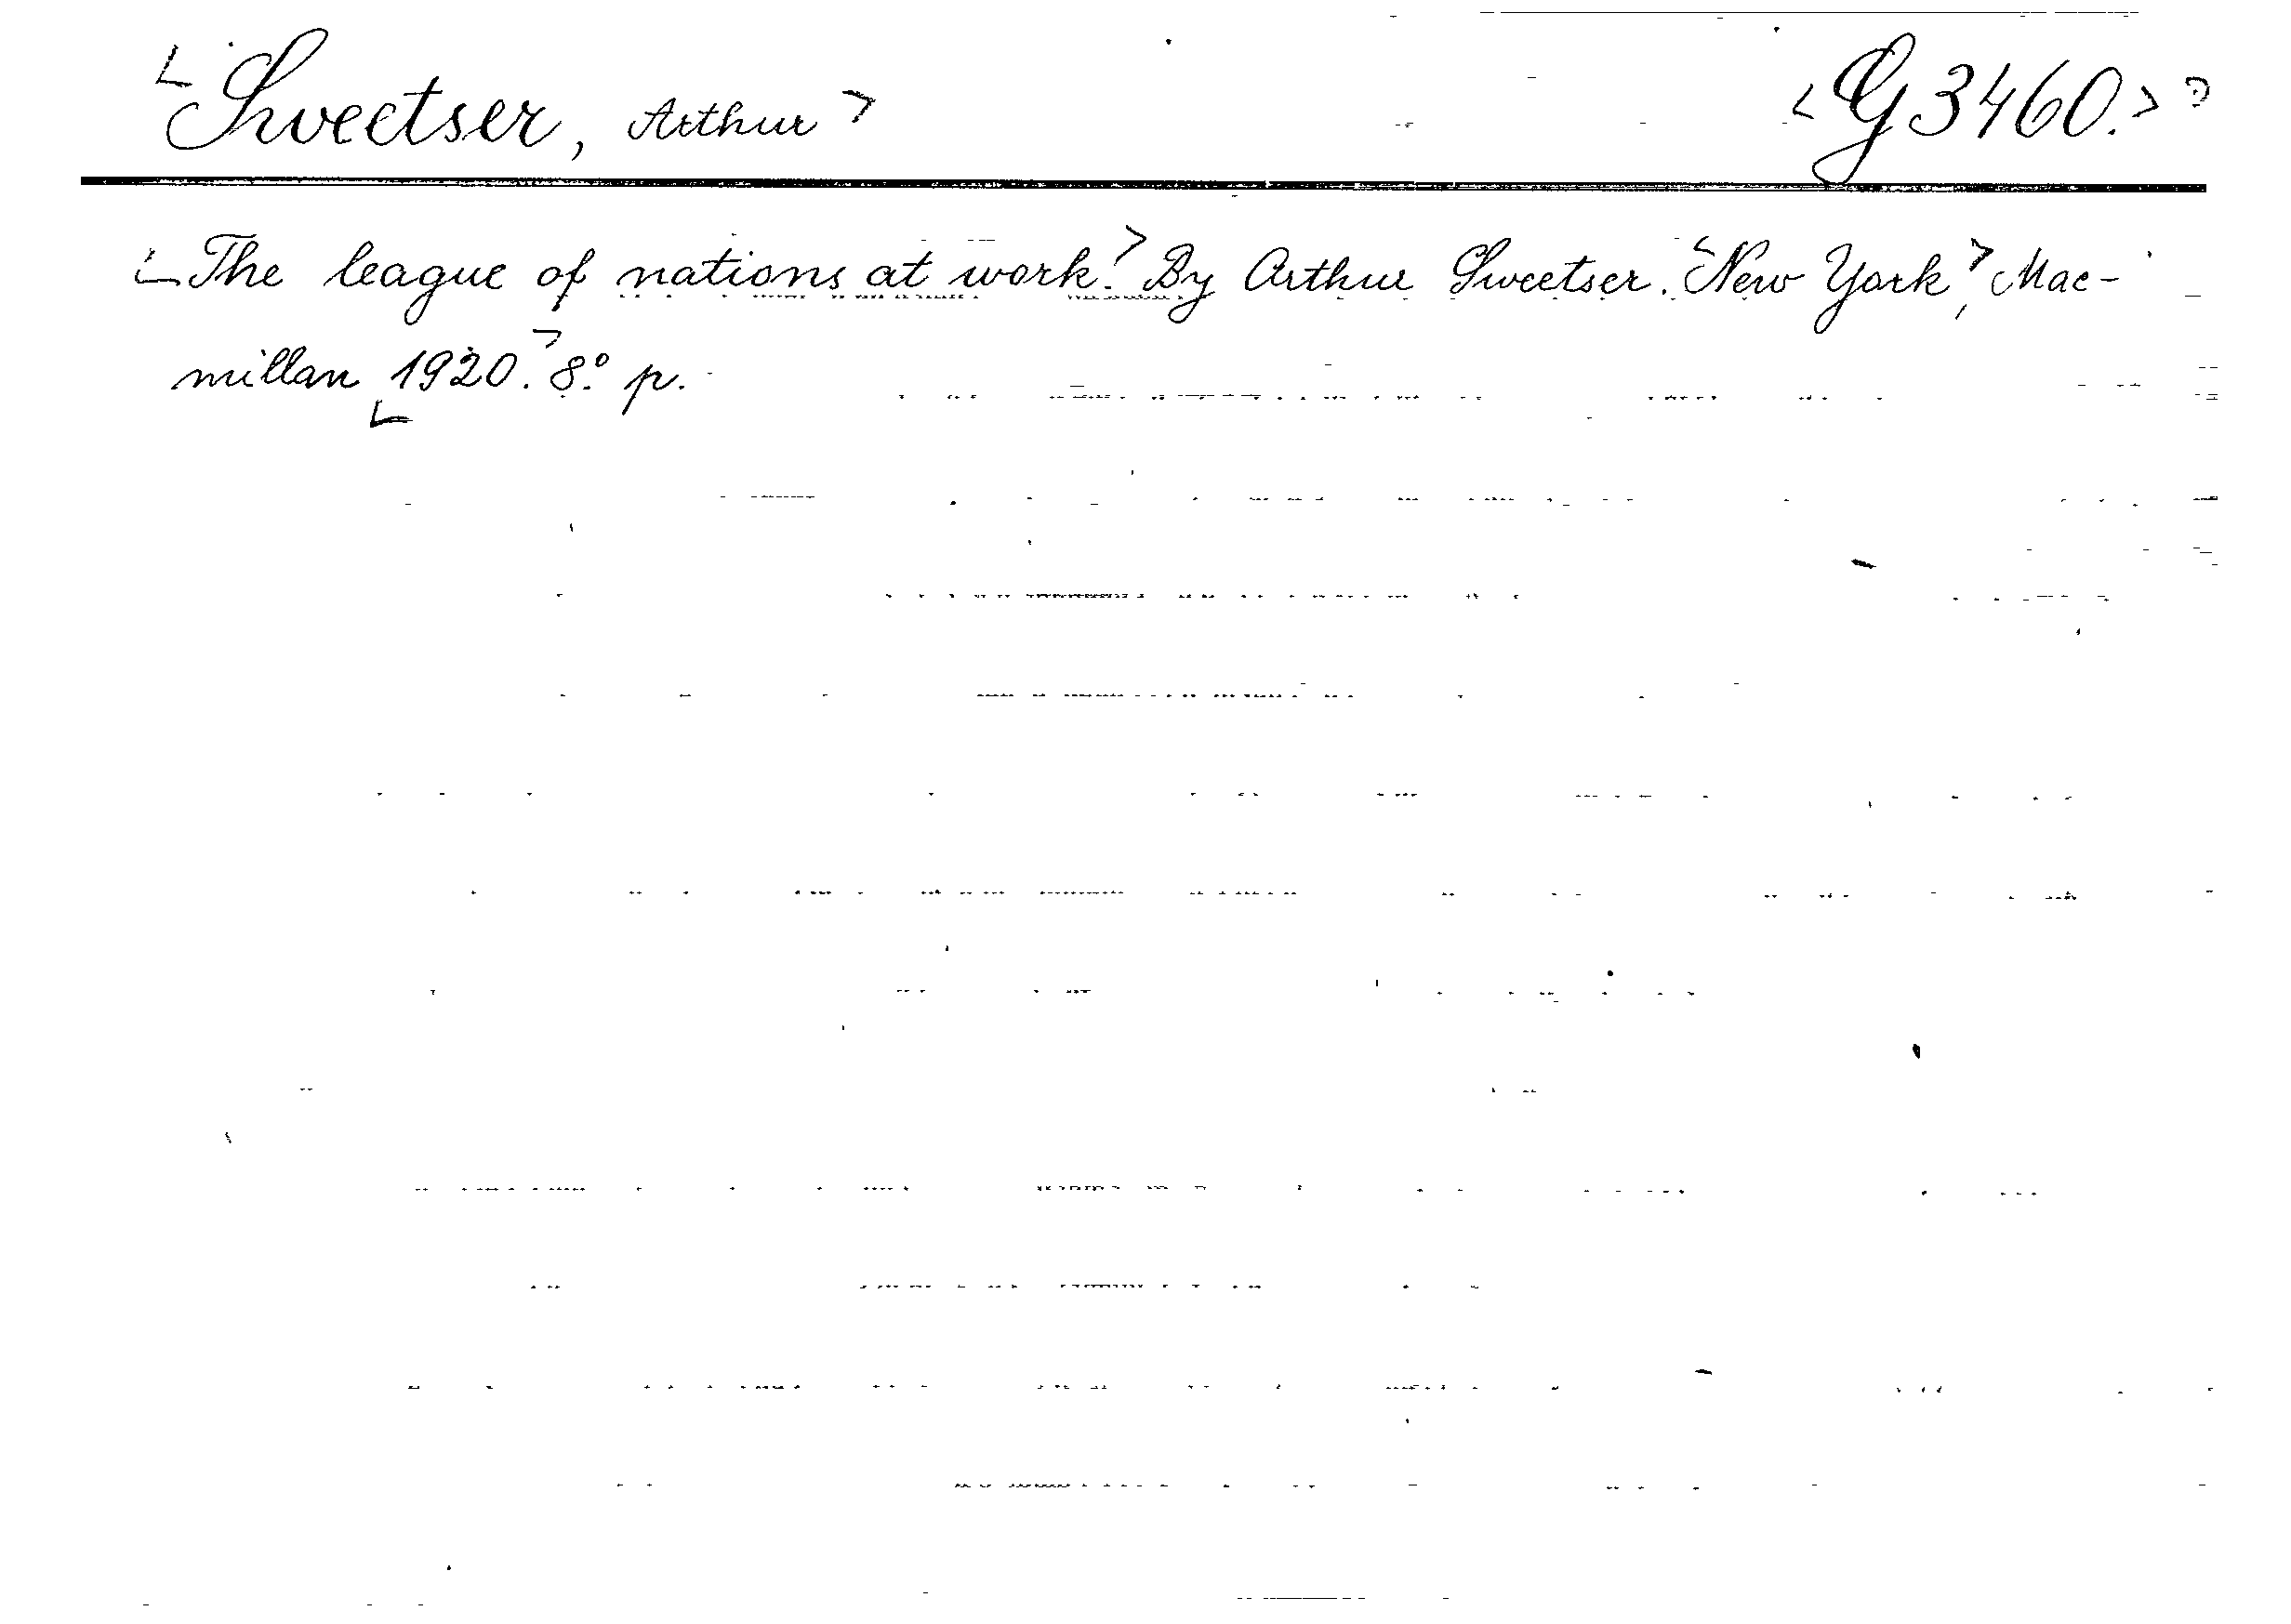 Sweetser, Arthur G 3460.
The league of nations at work. By Arthur Sweetser. New York, Mac-
millan 1920. 8.° p.